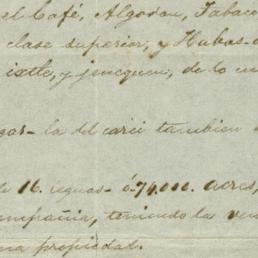 el Café, Algodon, Tabaco
clase superior, y Hubas
ixtle, y jenequen, de lo
la del carii tambien
16. leguas ó 74,000. acres,
compañia, teniendo la
propiedad.